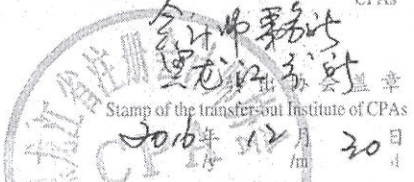 CPAs
会计师事务所
黑龙江分所
出协会盖章
Stamp of the transfer-out Institute of CPAs
2016年 12月 20日
/y /m /d
江省注册
CPA